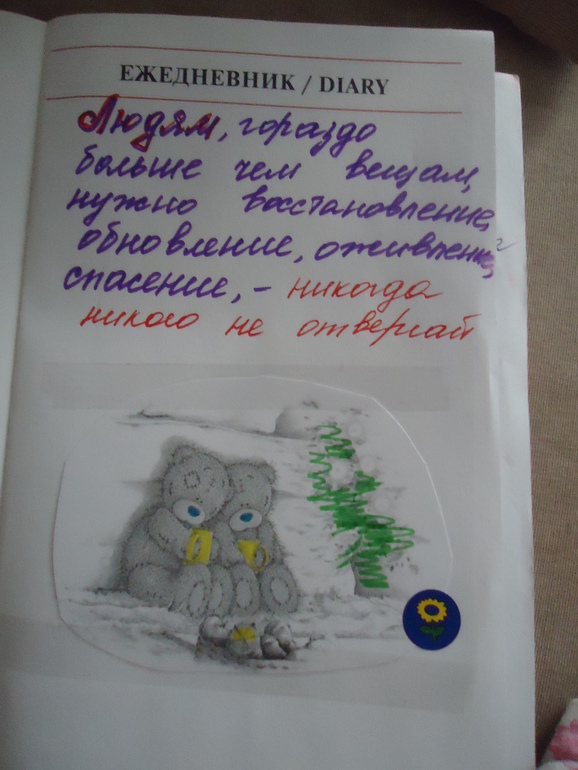 ЕЖЕДНЕВНИК / DIARY
Людям, гораздо
больше чем вещам,
нужно восстановление,
обновление, оживление,
спасение, – никогда
никого не отвергай